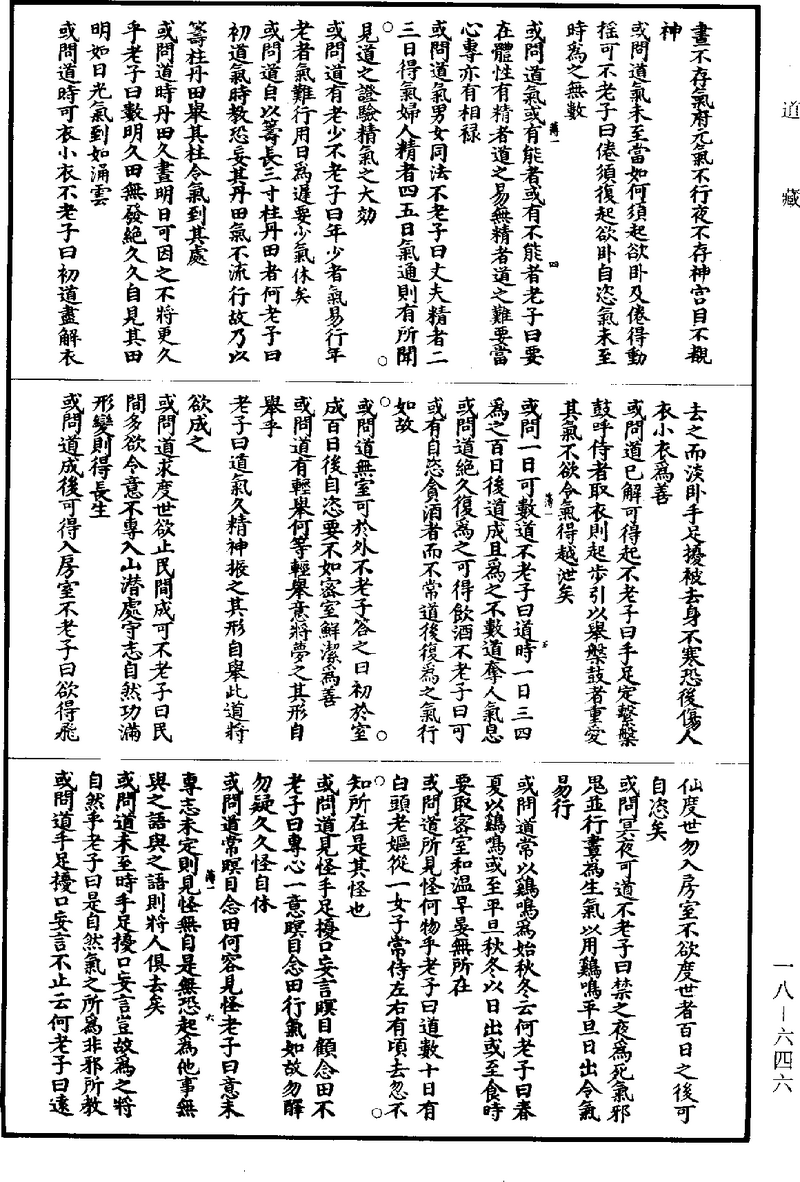 道藏
晝不存氣府元氣不行夜不存神宫目不覩
神
或問道氣未至當如何須起欲卧及倦得動
摇可不老子曰倦須復起欲卧自恣氣未至
時為之無數
或問道氣或有能者或有不能者老子曰要
在體性有精者道之易無精者道之難要當
心專亦有相禄
或問道氣男女同法不老子曰丈夫精者二
三日得氣婦人精者四五日氣通則有所聞
見道之證驗精氣之大効
或問道有老少不老子曰年少者氣易行年
老者氣難行用日為遲要少氣休矣
或問道自以籌長三寸柱丹田者何老子曰
初道氣時教恐妄其丹田氣不流行故乃以
籌柱丹田舉其柱令氣到其處
或問道時丹田久晝明日可因之不將更久
乎老子曰數明久田無發絶久久自見其田
明如日光氣到如涌雲
或問道時可衣小衣不老子曰初道盡解衣
去之而淡卧手足擾被去身不寒恐後傷人
衣小衣為善
或問道已解可得起不老子曰手足定繫槃
鼓呼侍者取衣則起步引以舉槃鼓者重愛
其氣不欲令氣得越泄矣
或問一日可數道不老子曰道時一日三四
為之百日後道成且為之不數道奪人氣息
或問道絶久復為之可得飲酒不老子曰可
或有自恣貪酒者而不常道後復為之氣行
如故
或問道無室可於外不老子答之曰初於室
成百日後自恣要不如密室鮮潔為善
或問道有輕舉何等輕舉意將夢之其形自
舉乎
老子曰道氣久精神振之其形自舉此道將
欲成之
或問道求度世欲止民間成可不老子曰民
間多欲令意不專入山潜處守志自然功滿
形變則得長生
或問道成後可得入房室不老子曰欲得飛
仙度世勿入房室不欲度世者百日之後可
自恣矣
或問冥夜可道不老子曰禁之夜為死氣邪
鬼並行晝為生氣以用鷄鳴平旦日出令氣
易行
或問道常以鷄鳴為始秋冬云何老子曰春
夏以鷄鳴或至平旦秋冬以日出或至食時
要取密室和温早晏無所在
或問道所見怪何物乎老子曰道數十日有
白頭老嫗從一女子常侍左右有頃去忽不
知所在是其怪也
或問道見怪手足擾口妄言瞑目顧念田不
老子曰專心一意瞑目念田行氣如故勿釋
勿疑久久怪自休
或問道常瞑目念田何容見怪老子曰意未
專志未定則見怪無自是無恐起為他事無
與之語與之語則將人俱去矣
或問道未至時手足擾口妄言豈故為之將
自然乎老子曰是自然氣之所為非邪所教
或問道手足擾口妄言不止云何老子曰遠
一八–六四六